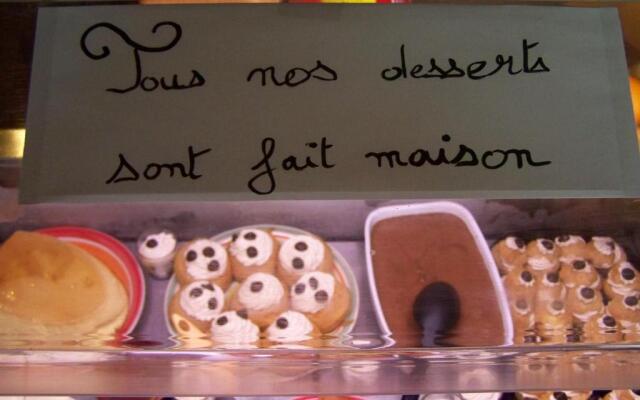 Tous nos desserts
sont fait maison